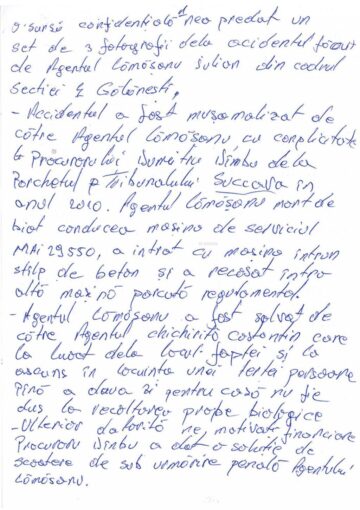 O sursă confidențială ne-a predat un
set de 3 fotografii dela accidentul făcut
de Agentul Lămășanu Iulian din cadrul
Secției Gălănești,
- Accidentul a fost mușamalizat de
către Agentul Lămășanu cu complicitate
Procurorului Dumitru Dimbu de la
Parchetul Tribunalului Succava in
anul 2010. Agentul Lămășanu mort de
biat conducea mașina de serviciul
MAI 29550, a intrat cu mașina intrun
stilp de beton și a recosat intro
altă mașină parcată regulamentar.
- Agentul Lămășanu a fost salvat de
către Agentul chichiriță costantin care
la luat dela locul faptei și la
ascuns in locuința unei terței persoane
Pină a doua zi pentru casă nu fie
dus la recoltarea probe biologice
- Ulterior datorită ne, motivate financiare
Procuroru Dimbu a dat o soluție de
scoatere de sub urmărire penală Agentului
Lămășanu.